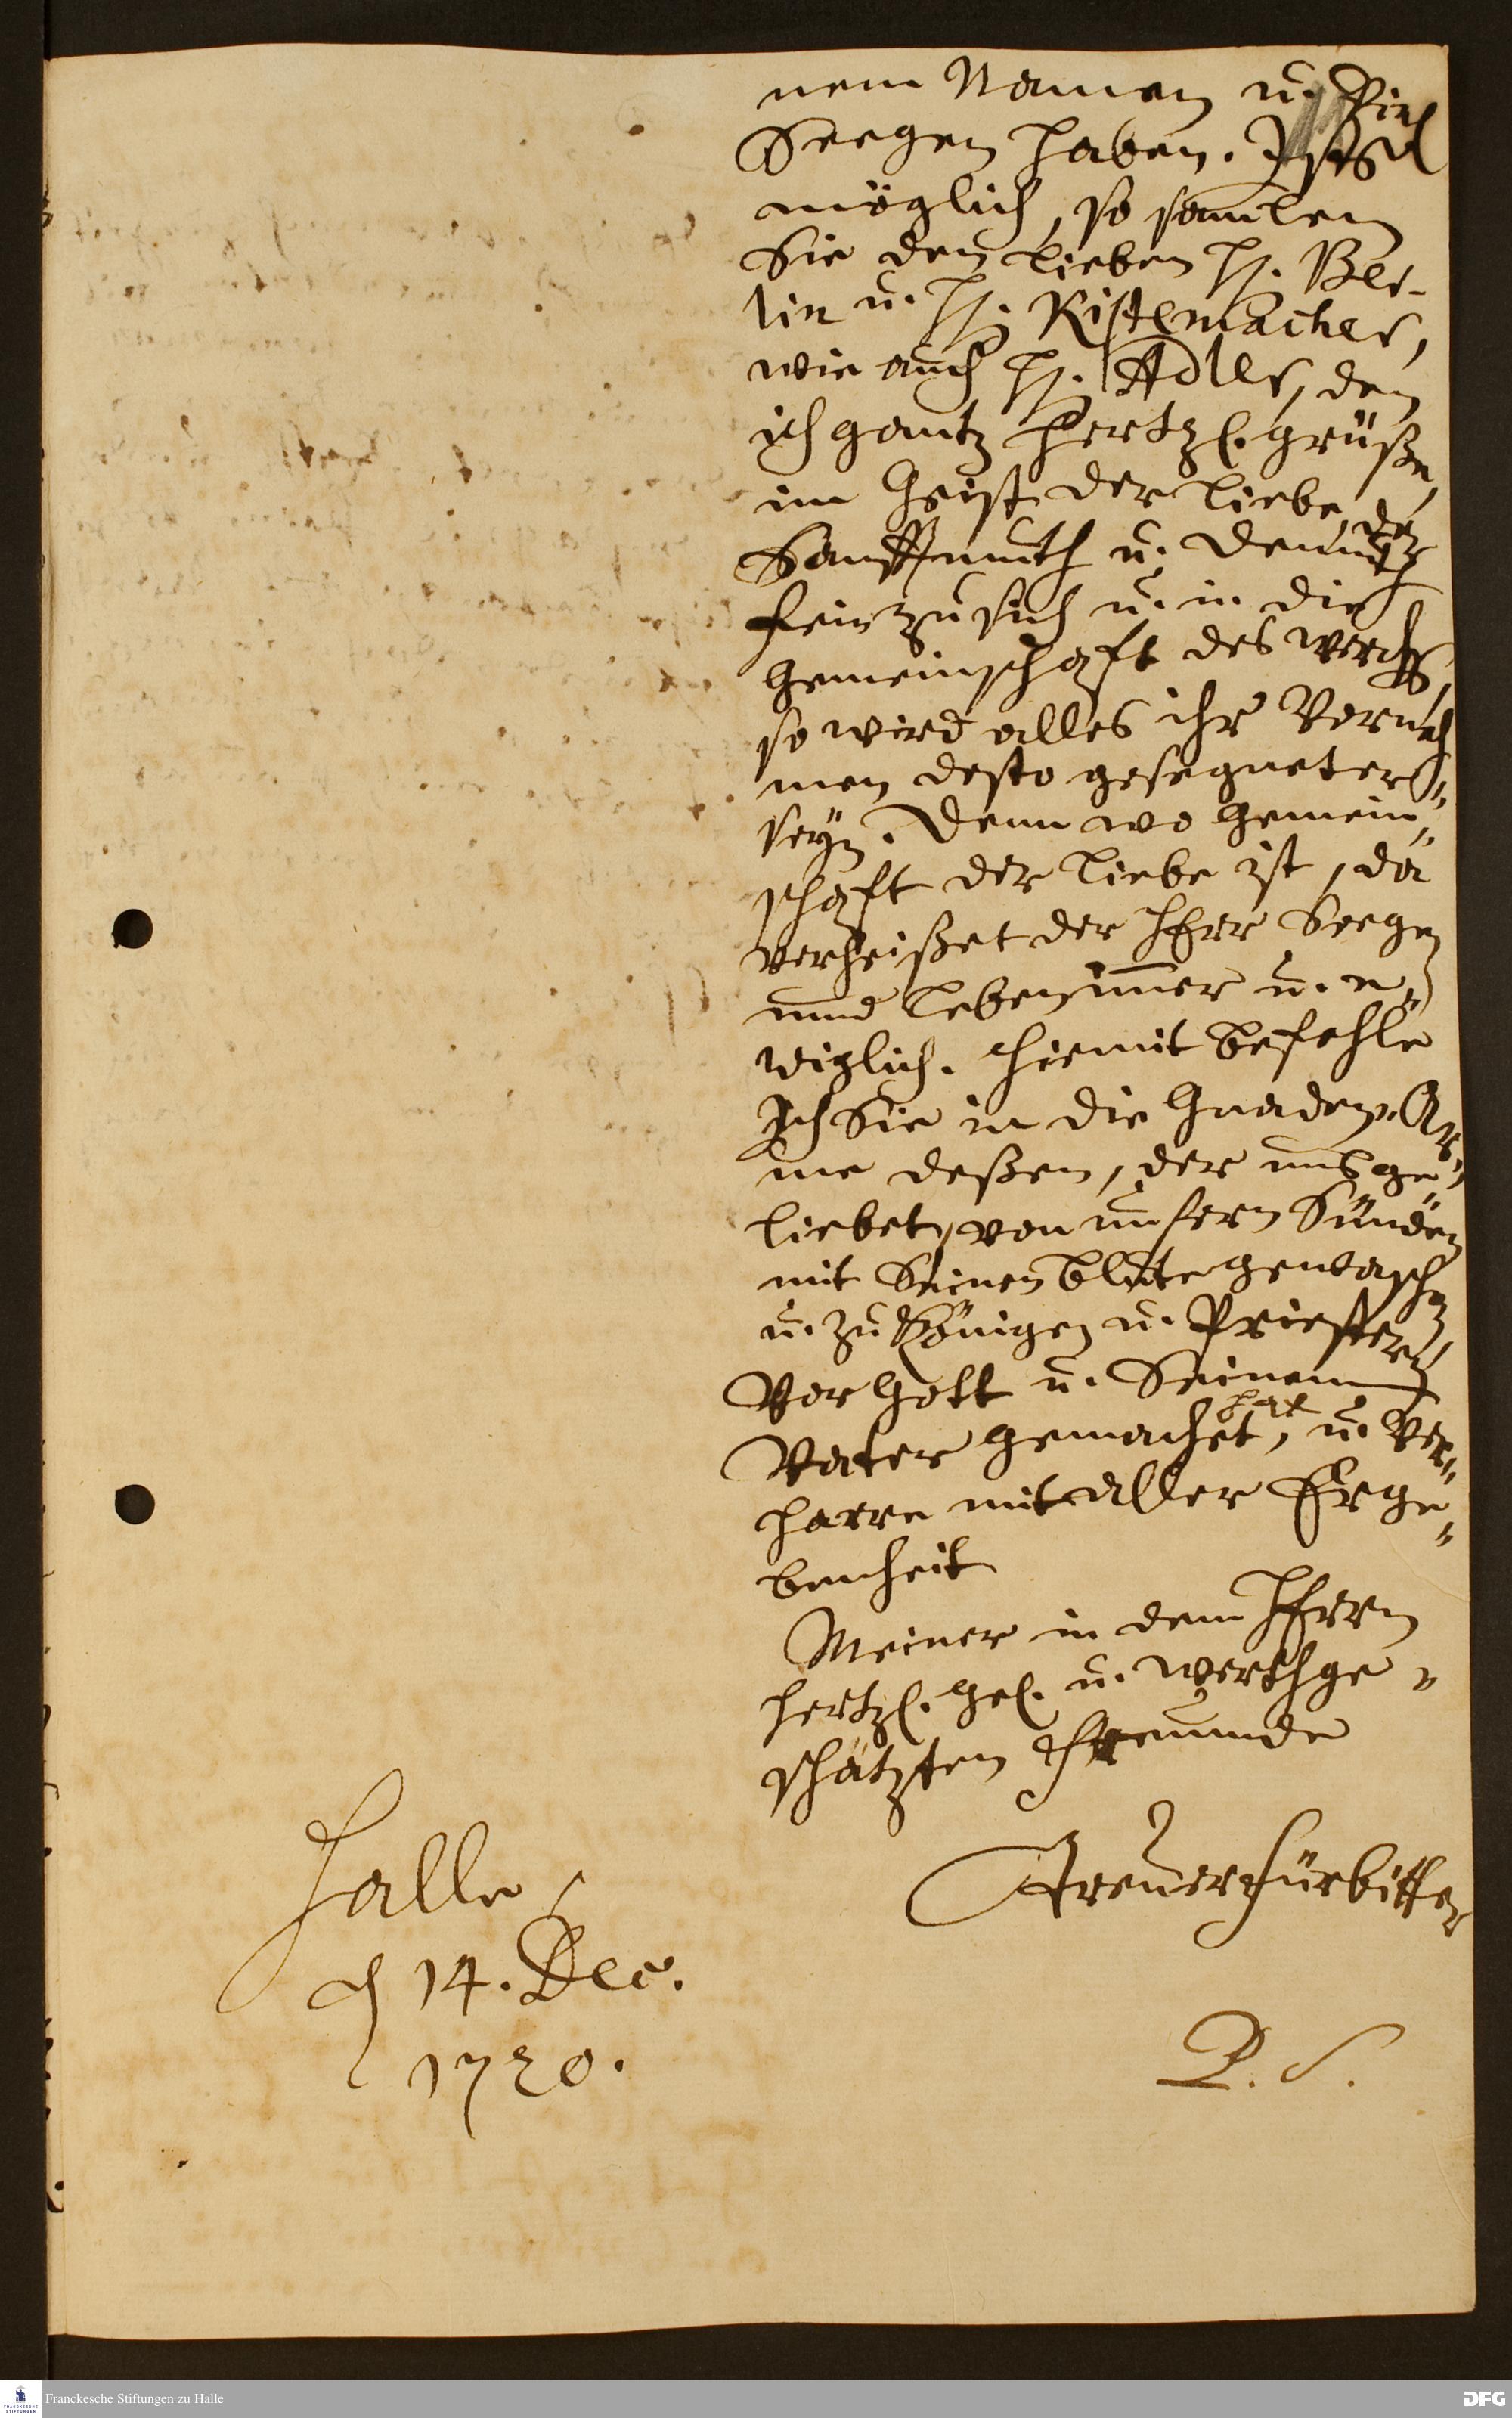 nem Namen u. viel
Seegen haben. Ists
möglich, so samlen
Sie den lieben H. Ber-
lin u. H. Kistemacher,
wie auch H. Adler, den
ich gantz hertzl. grüße,
im Geist der Liebe, der
Sanfftmuth u. Demuth
fein zu sich u. in die
Gemeinschafft des Wercks,
so wird alles ihr Verneh
men desto gesegneter
seyn. Denn wo Gemein-
schafft der Liebe ist, da
verheißet der HErr Seegen
und Leben im̄er u. e-
wiglich. Hiemit befehle
Ich Sie in die Gnaden-Ar-
me deßen, der uns ge-
liebet, von unsern Sünden
mit Seinen Blute gewaschen
u. zu Königen u. Priestern
vor Gott u. Seinem
Vater gemachet hat, u. ver-
harre mit aller Erge-
benheit
Meiner in dem HErrn
hertzl. gel. u. werthge-
schätzten Freunde
Halle,
d 14. Dec.
1720.
Treuer Fürbitter
P. S.
Franckesche Stiftungen zu Halle
DFG